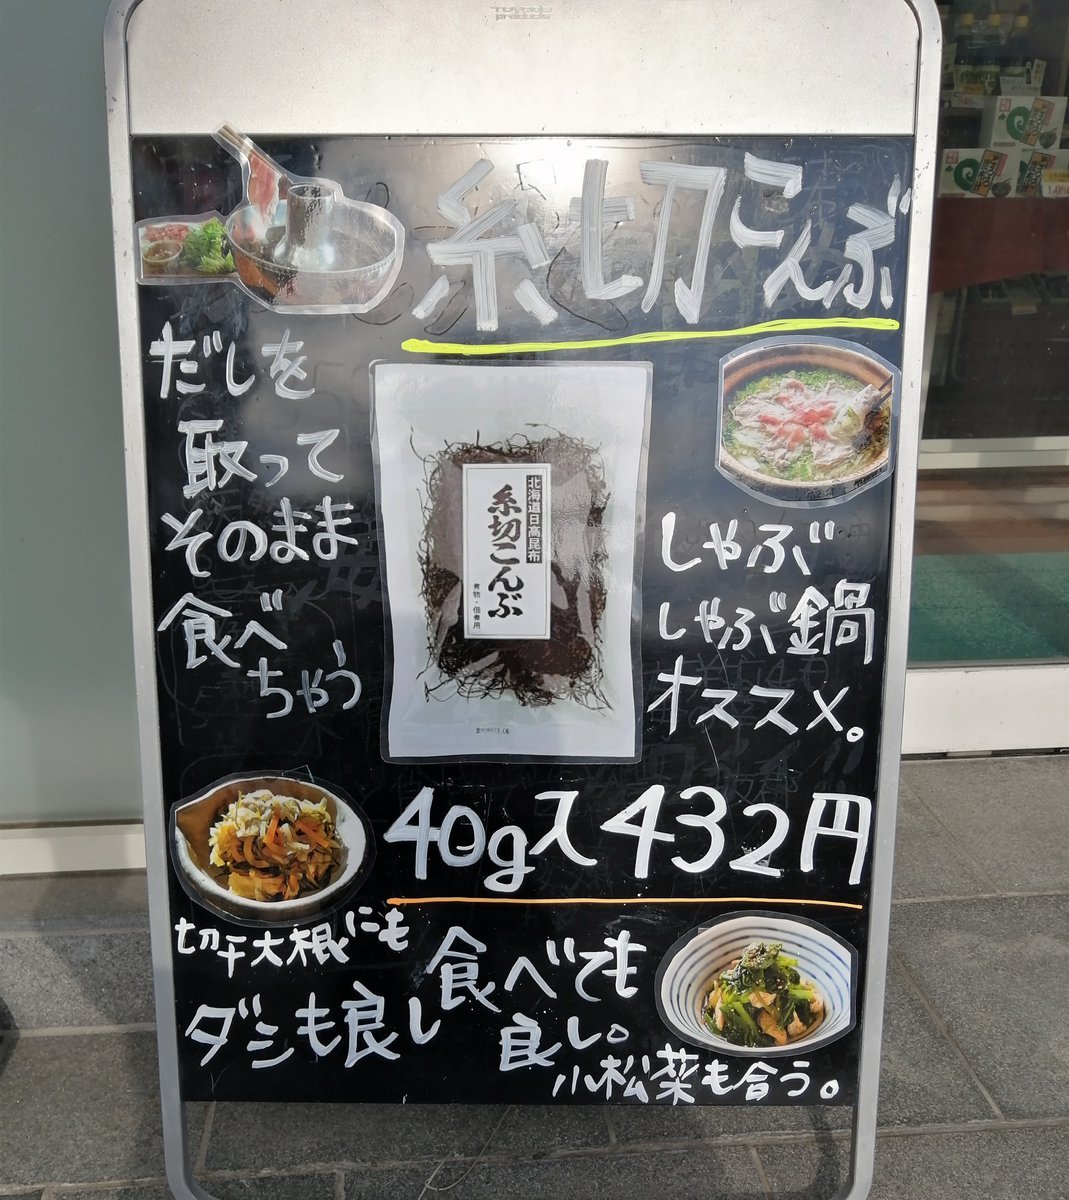 糸切こんぶ
だしを
取って
そのまま
食べ
ちゃう
北海道日高昆布
糸切こんぶ
煮物・佃煮用
しゃぶ
しゃぶ鍋
オススメ。
40g入432円
切干大根にも
ダシも良し
食べても
良し。
小松菜も合う。